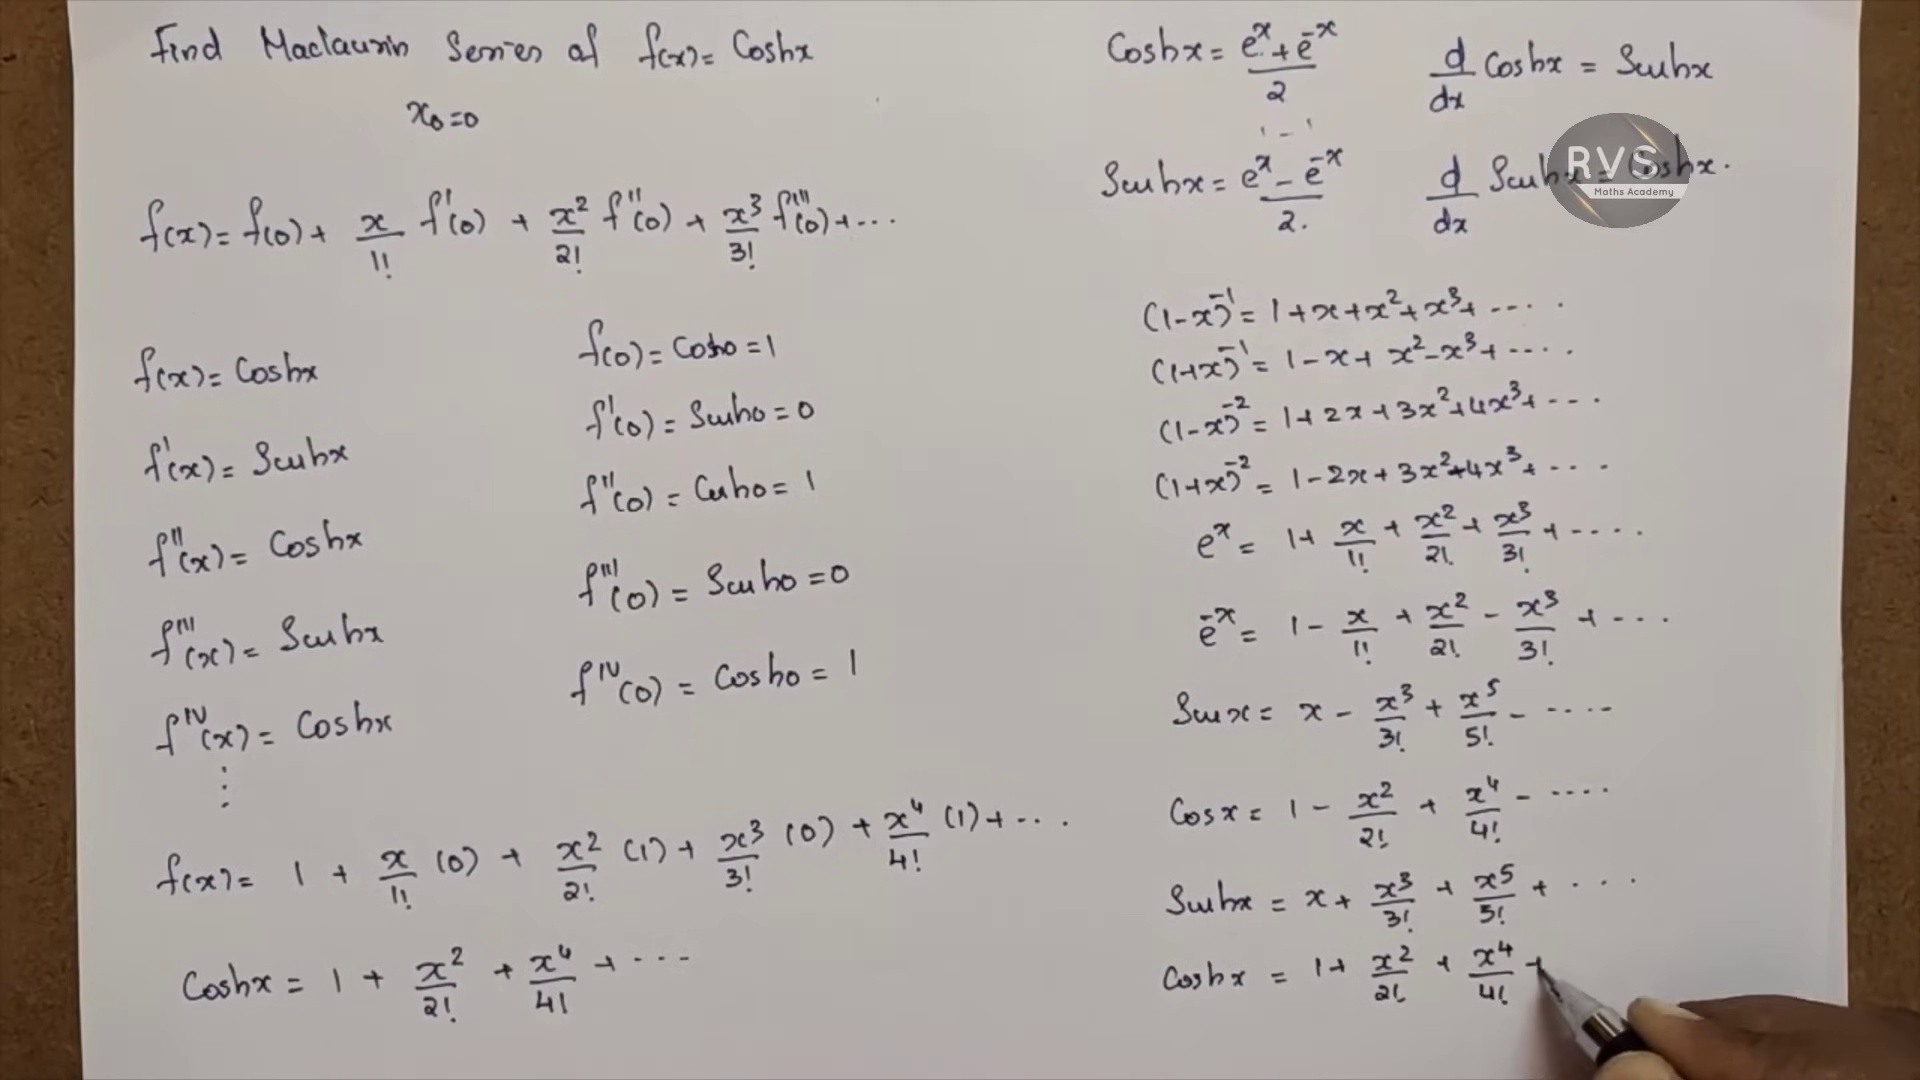 Find Maclaurin Series of f(x) = Coshx
x₀=0
f(x) = f(0) + x/1! f'(0) + x²/2! f''(0) + x³/3! f'''(0) + ...
f(x) = Coshx
f'(x) = Sinhx
f''(x) = Coshx
f'''(x) = Sinhx
f^IV(x) = Coshx
⋮
f(0) = Cosh0 = 1
f'(0) = Sinh0 = 0
f''(0) = Cosh0 = 1
f'''(0) = Sinh0 = 0
f^IV(0) = Cosh0 = 1
f(x) = 1 + x/1! (0) + x²/2! (1) + x³/3! (0) + x⁴/4! (1) + ...
Coshx = 1 + x²/2! + x⁴/4! + ...
Coshx = (e^x + e^-x)/2
d/dx Coshx = Sinhx
Sinhx = (e^x - e^-x)/2.
d/dx Sinhx = Coshx.
RVS
Maths Academy
(1-x)^-1 = 1 + x + x² + x³ + ....
(1+x)^-1 = 1 - x + x² - x³ + ....
(1-x)^-2 = 1 + 2x + 3x² + 4x³ + ...
(1+x)^-2 = 1 - 2x + 3x² - 4x³ + ...
e^x = 1 + x/1! + x²/2! + x³/3! + ....
e^-x = 1 - x/1! + x²/2! - x³/3! + ...
Sinx = x - x³/3! + x⁵/5! - ....
Cosx = 1 - x²/2! + x⁴/4! - ....
Sinhx = x + x³/3! + x⁵/5! + ...
Coshx = 1 + x²/2! + x⁴/4! +